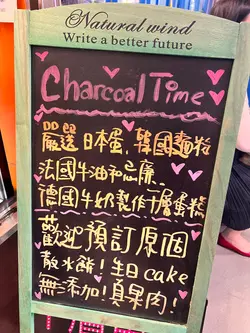 Natural wind
Write a better future
Charcoal Time
嚴選日本蛋, 韓國麵粉
法國牛油和忌廉..
德國牛奶製作千層蛋糕
歡迎預訂原個
散水餅！生日cake
無添加！真果肉！